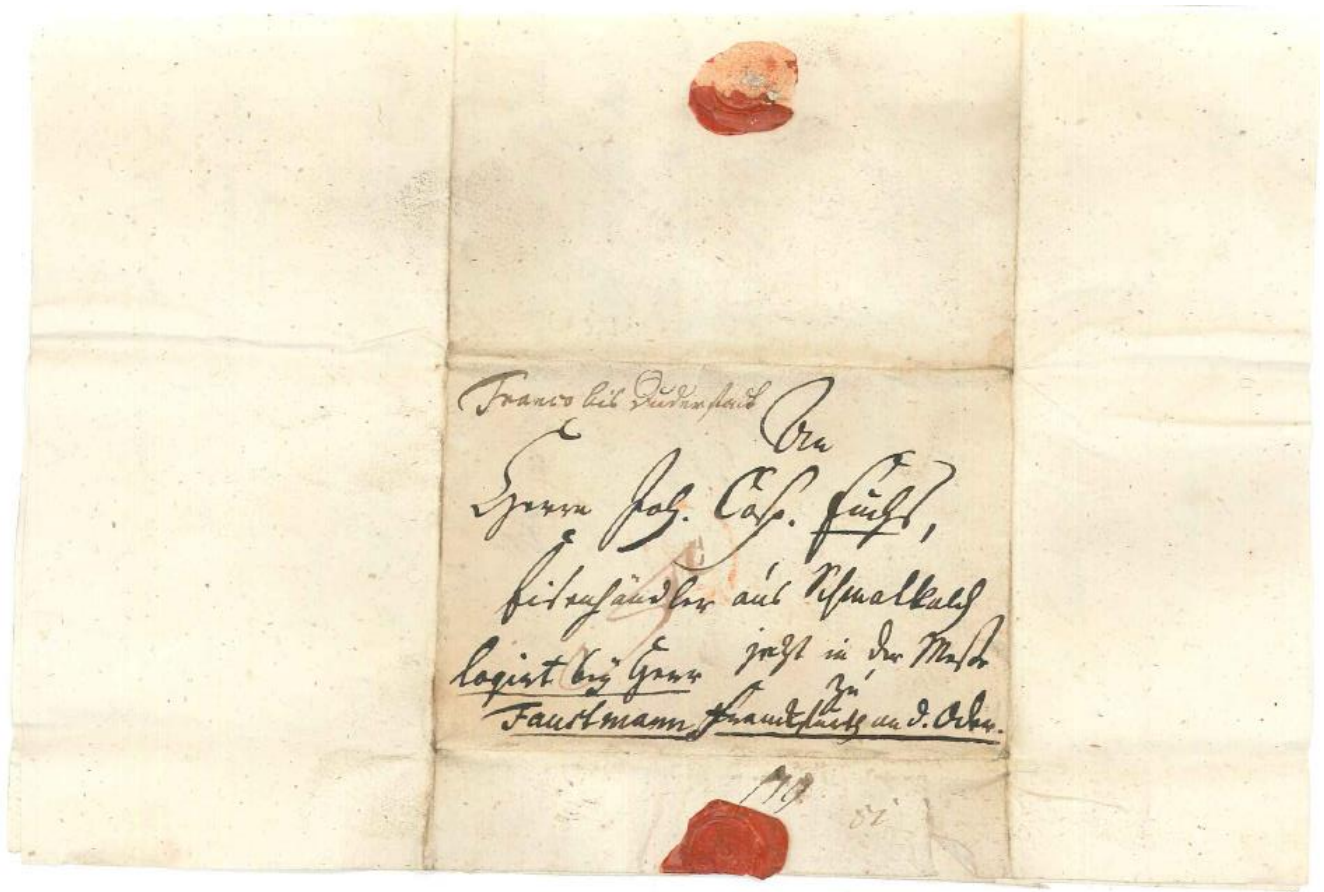 Franco bis Duderstadt
An
Herrn Joh. Casp. Fuchs,
Eisenhändler aus Schmalkald
jetzt in der Messe
logirt bey Herr
zu
Faustmann Franckfurth an d. Oder.